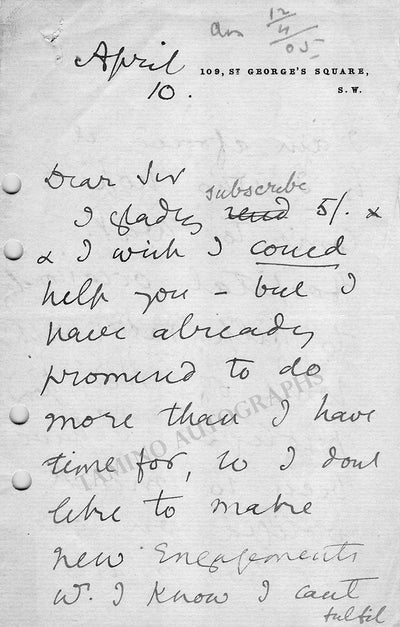 Ans 12/4/05.
April
10.
109, ST GEORGE'S SQUARE,
S. W.
Dear Sir
subscribe
I gladly send 5/. &
& I wish I could
help you – but I
have already
promised to do
more than I have
time for, so I dont
like to make
new Engagements
w. I know I cant
fulfil
TAMINO AUTOGRAPHS